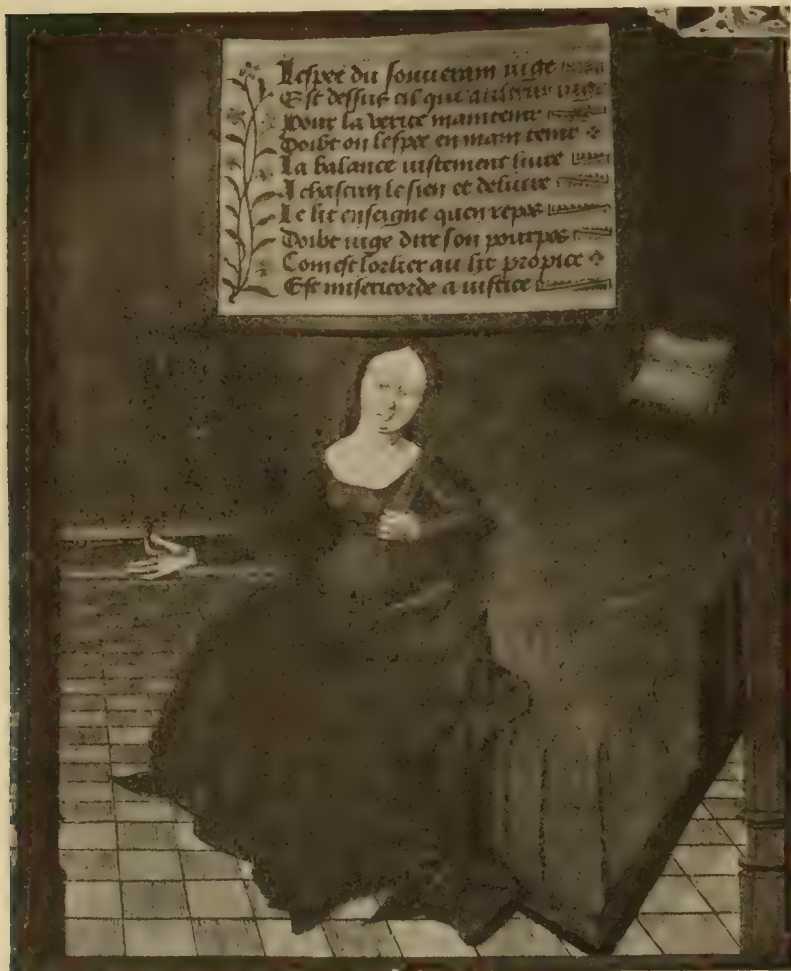 Lespee du souverain iuge
Est dessus cil qui aultrui iuge
Pour la verite maintenir
Doibt on lespee en main tenir
La balance iustement liure
A chascun le sien et deliure
Le lit enseigne quen repos
Doibt iuge dire son pourpos
Com est lorlier au lit propice
Est misericorde a iustice